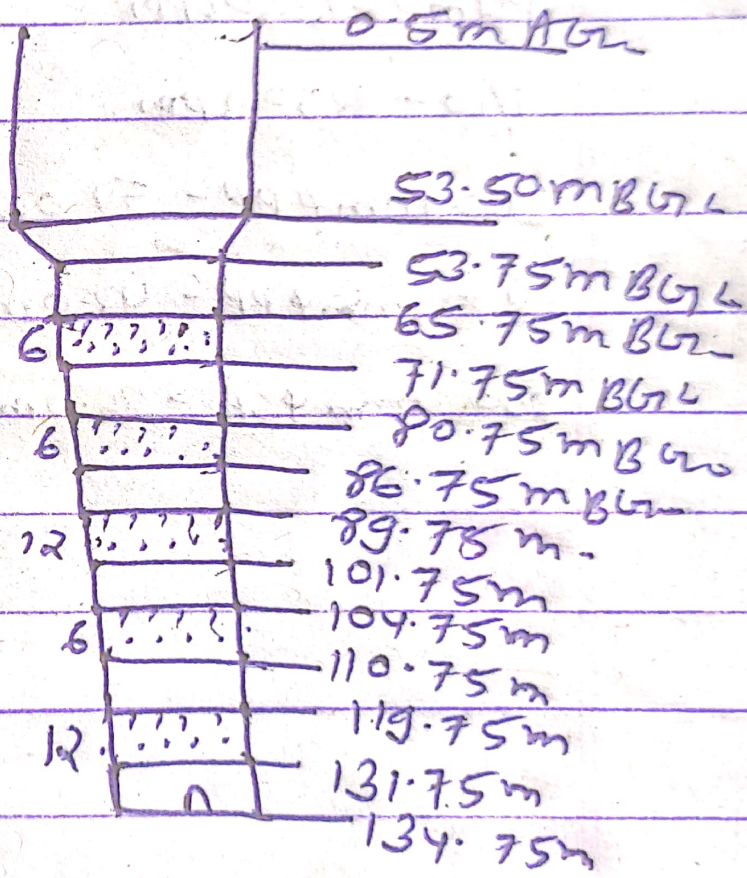 0.5m AGL
53.50m BGL
53.75m BGL
65.75m BGL
6
71.75m BGL
80.75m BGL
6
86.75m BGL
89.75m.
12
101.75m
104.75m
6
110.75m
119.75m
12.
131.75m
134.75m